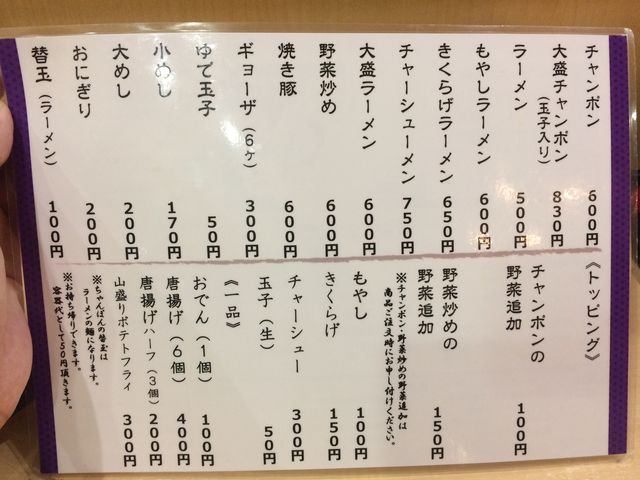 チャンポン 600円
大盛チャンポン（玉子入り） 830円
ラーメン 500円
もやしラーメン 600円
きくらげラーメン 650円
チャーシューメン 750円
大盛ラーメン 600円
野菜炒め 600円
焼き豚 600円
ギョーザ（6ケ） 300円
ゆで玉子 50円
小めし 170円
大めし 200円
おにぎり 200円
替玉（ラーメン） 100円
《トッピング》
チャンポンの
野菜追加 100円
野菜炒めの
野菜追加 150円
※チャンポン・野菜炒めの野菜追加は
商品ご注文時にお申し付けください。
もやし 100円
きくらげ 150円
チャーシュー 300円
玉子（生） 50円
《一品》
おでん（1個） 100円
唐揚げ（6個） 400円
唐揚げハーフ（3個） 200円
山盛りポテトフライ 300円
※ちゃんぽんの替玉は
ラーメンの麺になります。
※お持ち帰りできます。
容器代として50円頂きます。